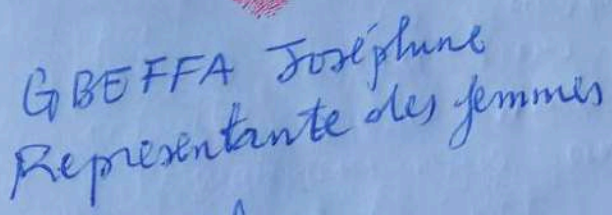 GBEFFA Joséphine
Representante des femmes